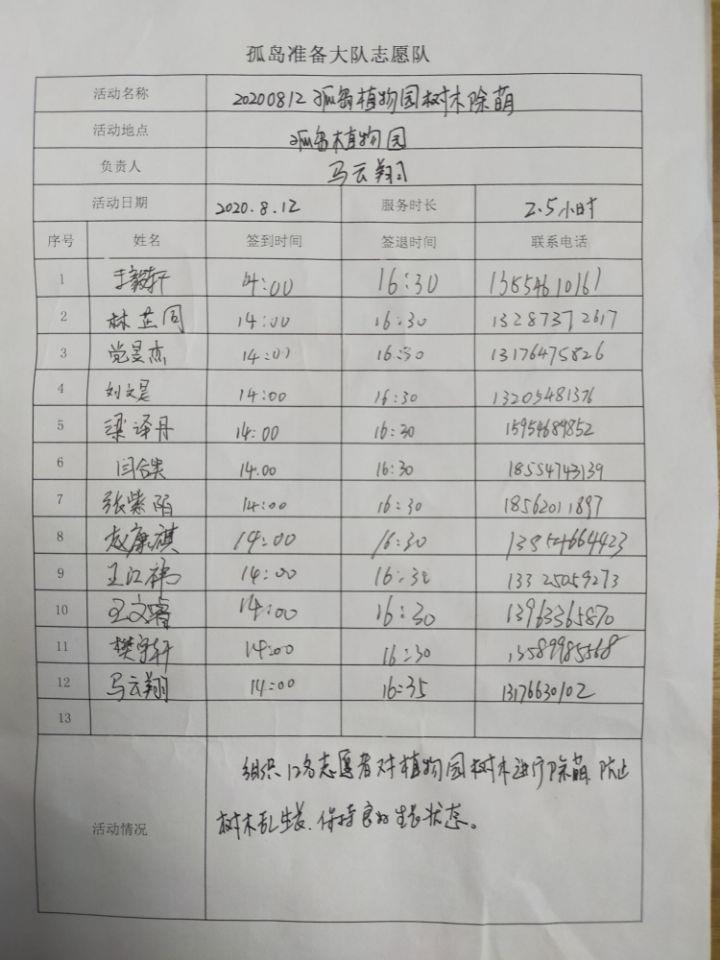 孤岛准备大队志愿队
活动名称 20200812孤岛植物园树木除萌
活动地点 孤岛植物园
负责人 马云翔
活动日期 2020.8.12 服务时长 2.5小时
序号 姓名 签到时间 签退时间 联系电话
1 于毅轩 14:00 16:30 13854610161
2 林芷同 14:00 16:30 13287372617
3 党昱杰 14:00 16:30 13176475826
4 刘文昱 14:00 16:30 13205481376
5 梁译丹 14:00 16:30 15954689852
6 闫 14.00 16:30 18554743139
7 张紫陌 14:00 16:30 18562011897
8 龙康祺 14:00 16:30 13854664423
9 王江 14:00 16:30 13325059273
10 王文睿 14:00 16:30 13963365870
11 樊宇轩 14:00 16:30 13589985568
12 马云翔 14:00 16:35 13176630102
13
活动情况
组织12名志愿者对植物园树木进行除萌,防止
树木乱生长,保持良好生长状态。